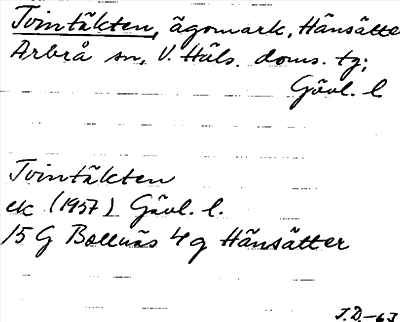 Tvintäkten, ägomark, Hänsätte
Arbrå sn, V. Häls. doms. tg;
Gävl. l.
Tvintäkten
ek (1957) Gävl. l.
15 G Bollnäs 4 g Hänsätter
J.D.-63